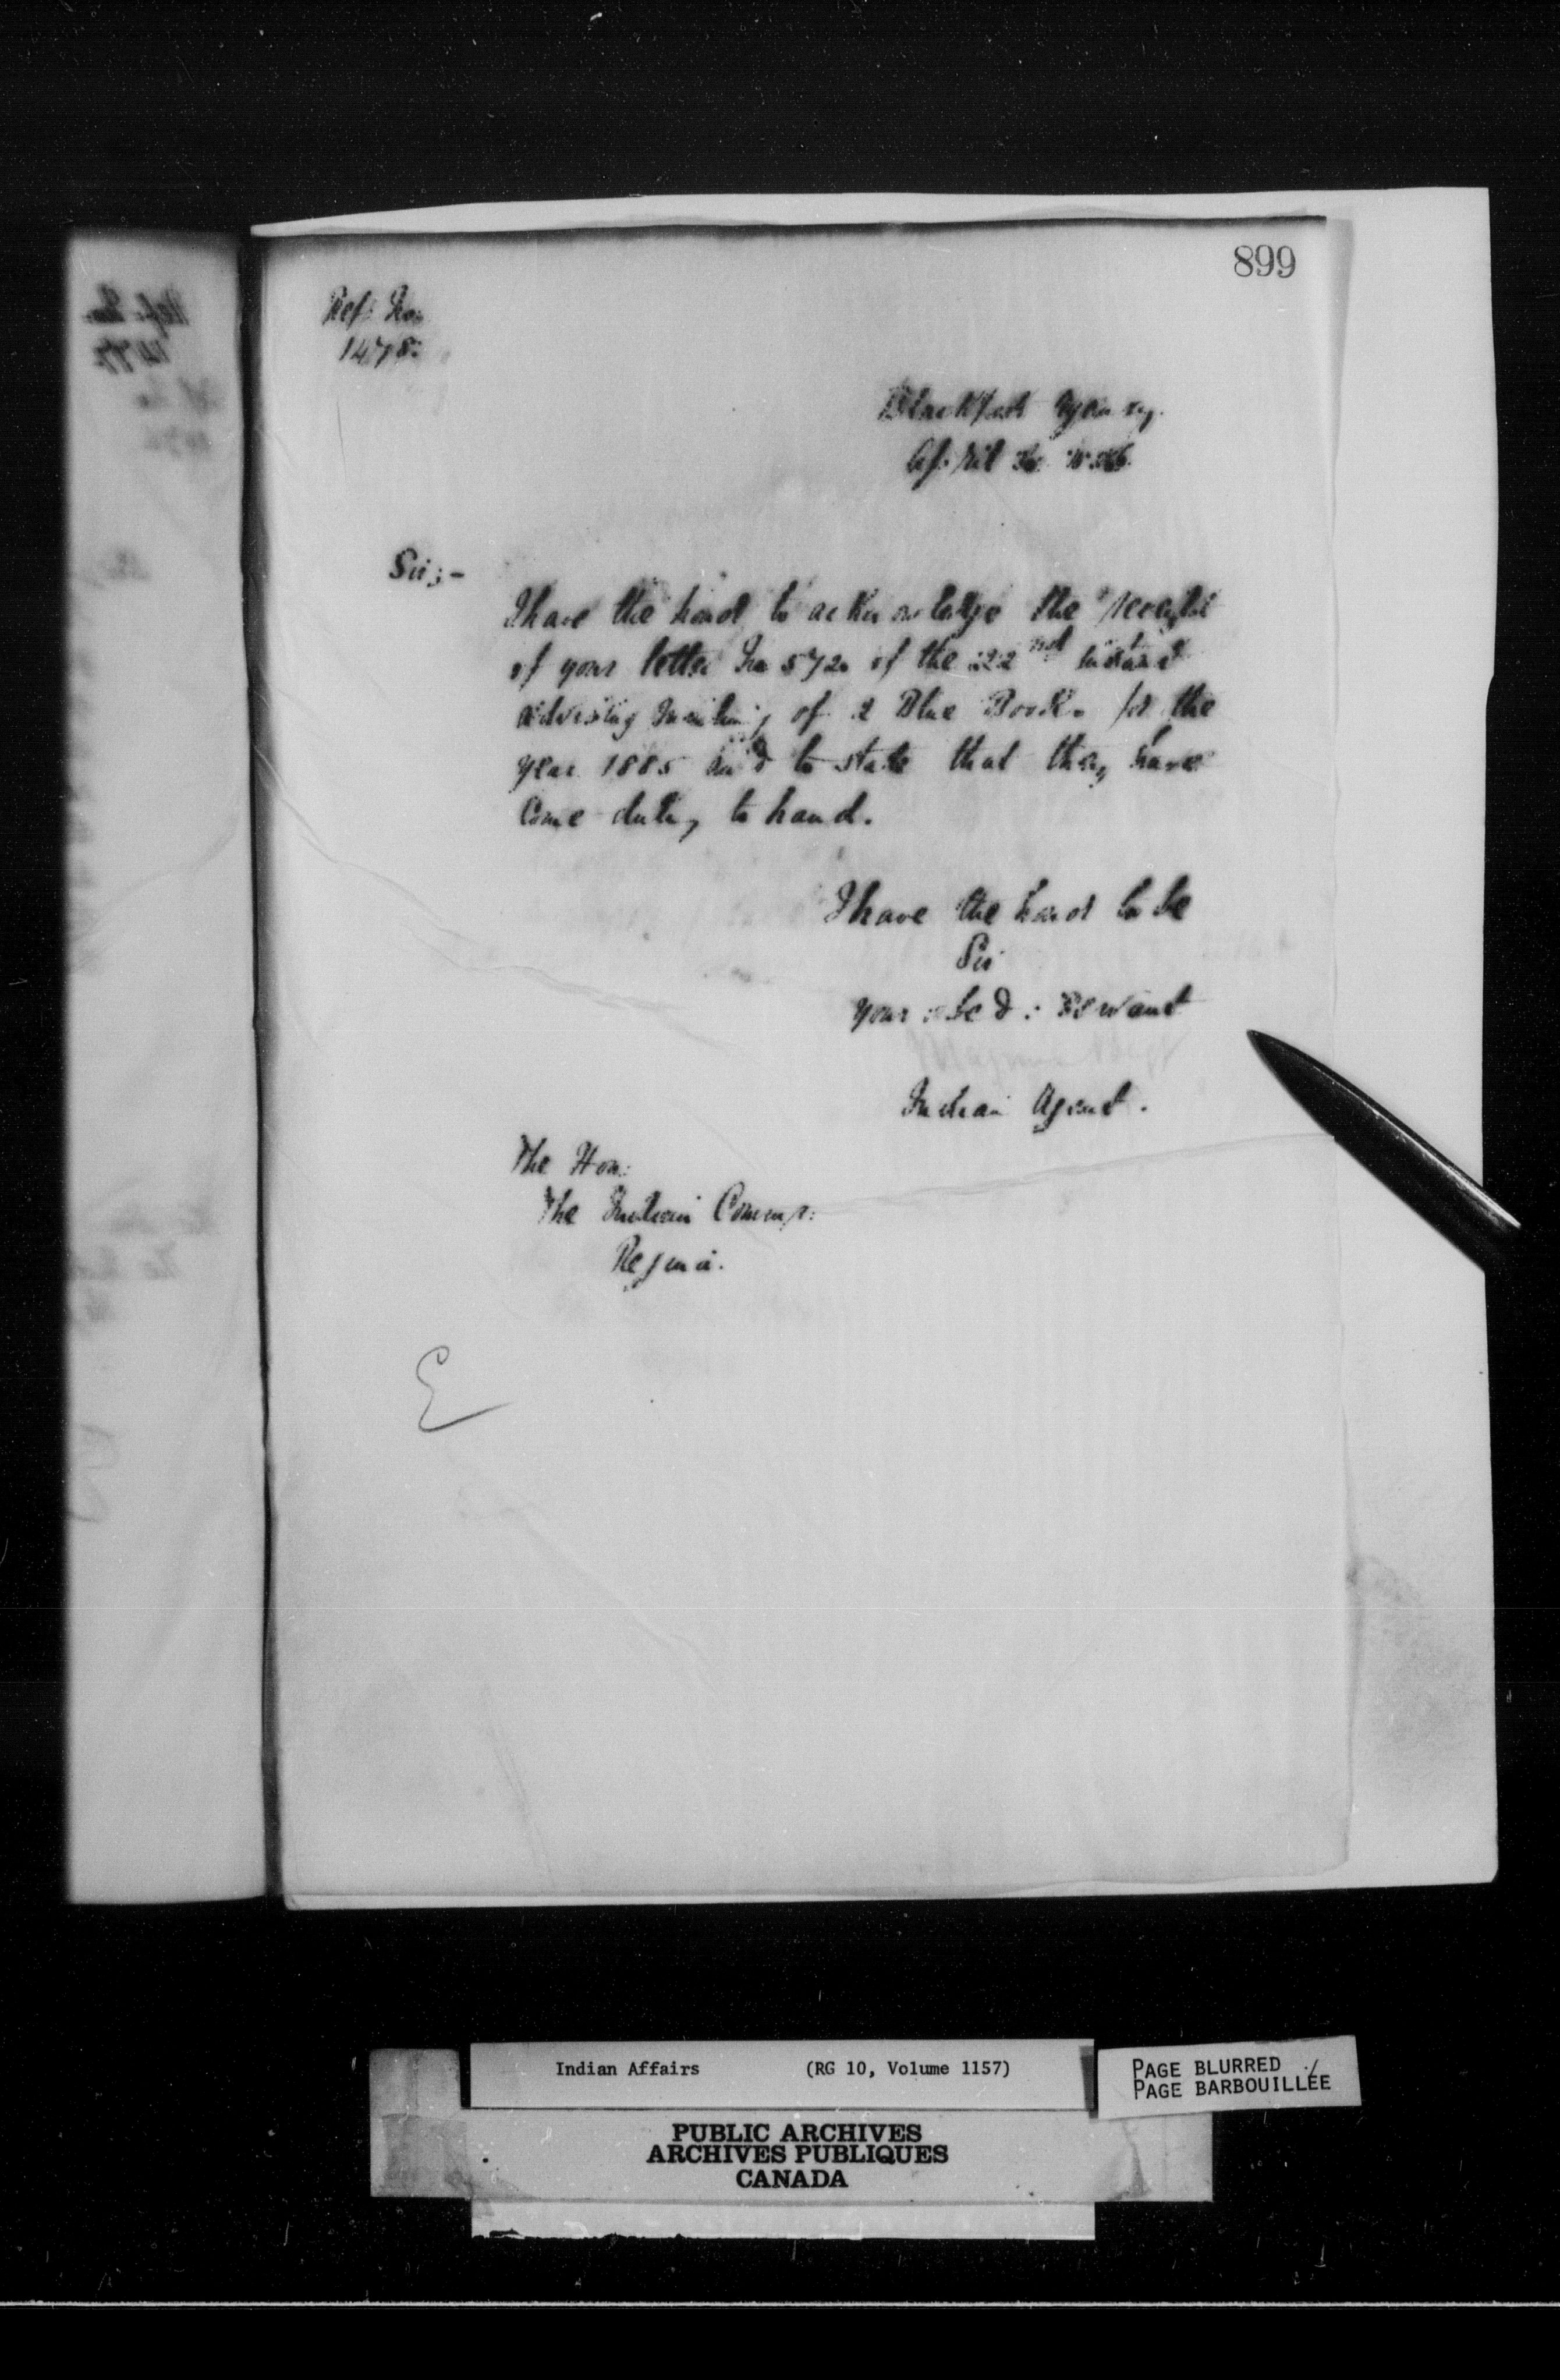 899
Ref: No.
1478.
Blackfoot Agency.
April 1886.
Sir;-
I have the honor to acknowledge the receipt
of your letter No 572. of the 22nd instant
advising mailing of 2 Blue Books for the
year 1885 and to state that they have
Come duly to hand.
I have the honor to be
Sir
your obed: Servant
Magnus Begg
Indian Agent.
The Hon:
The Indian Commr:
Regina.
E
Indian Affairs (RG 10, Volume 1157)
PAGE BLURRED
PAGE BARBOUILLÉE
PUBLIC ARCHIVES
ARCHIVES PUBLIQUES
CANADA